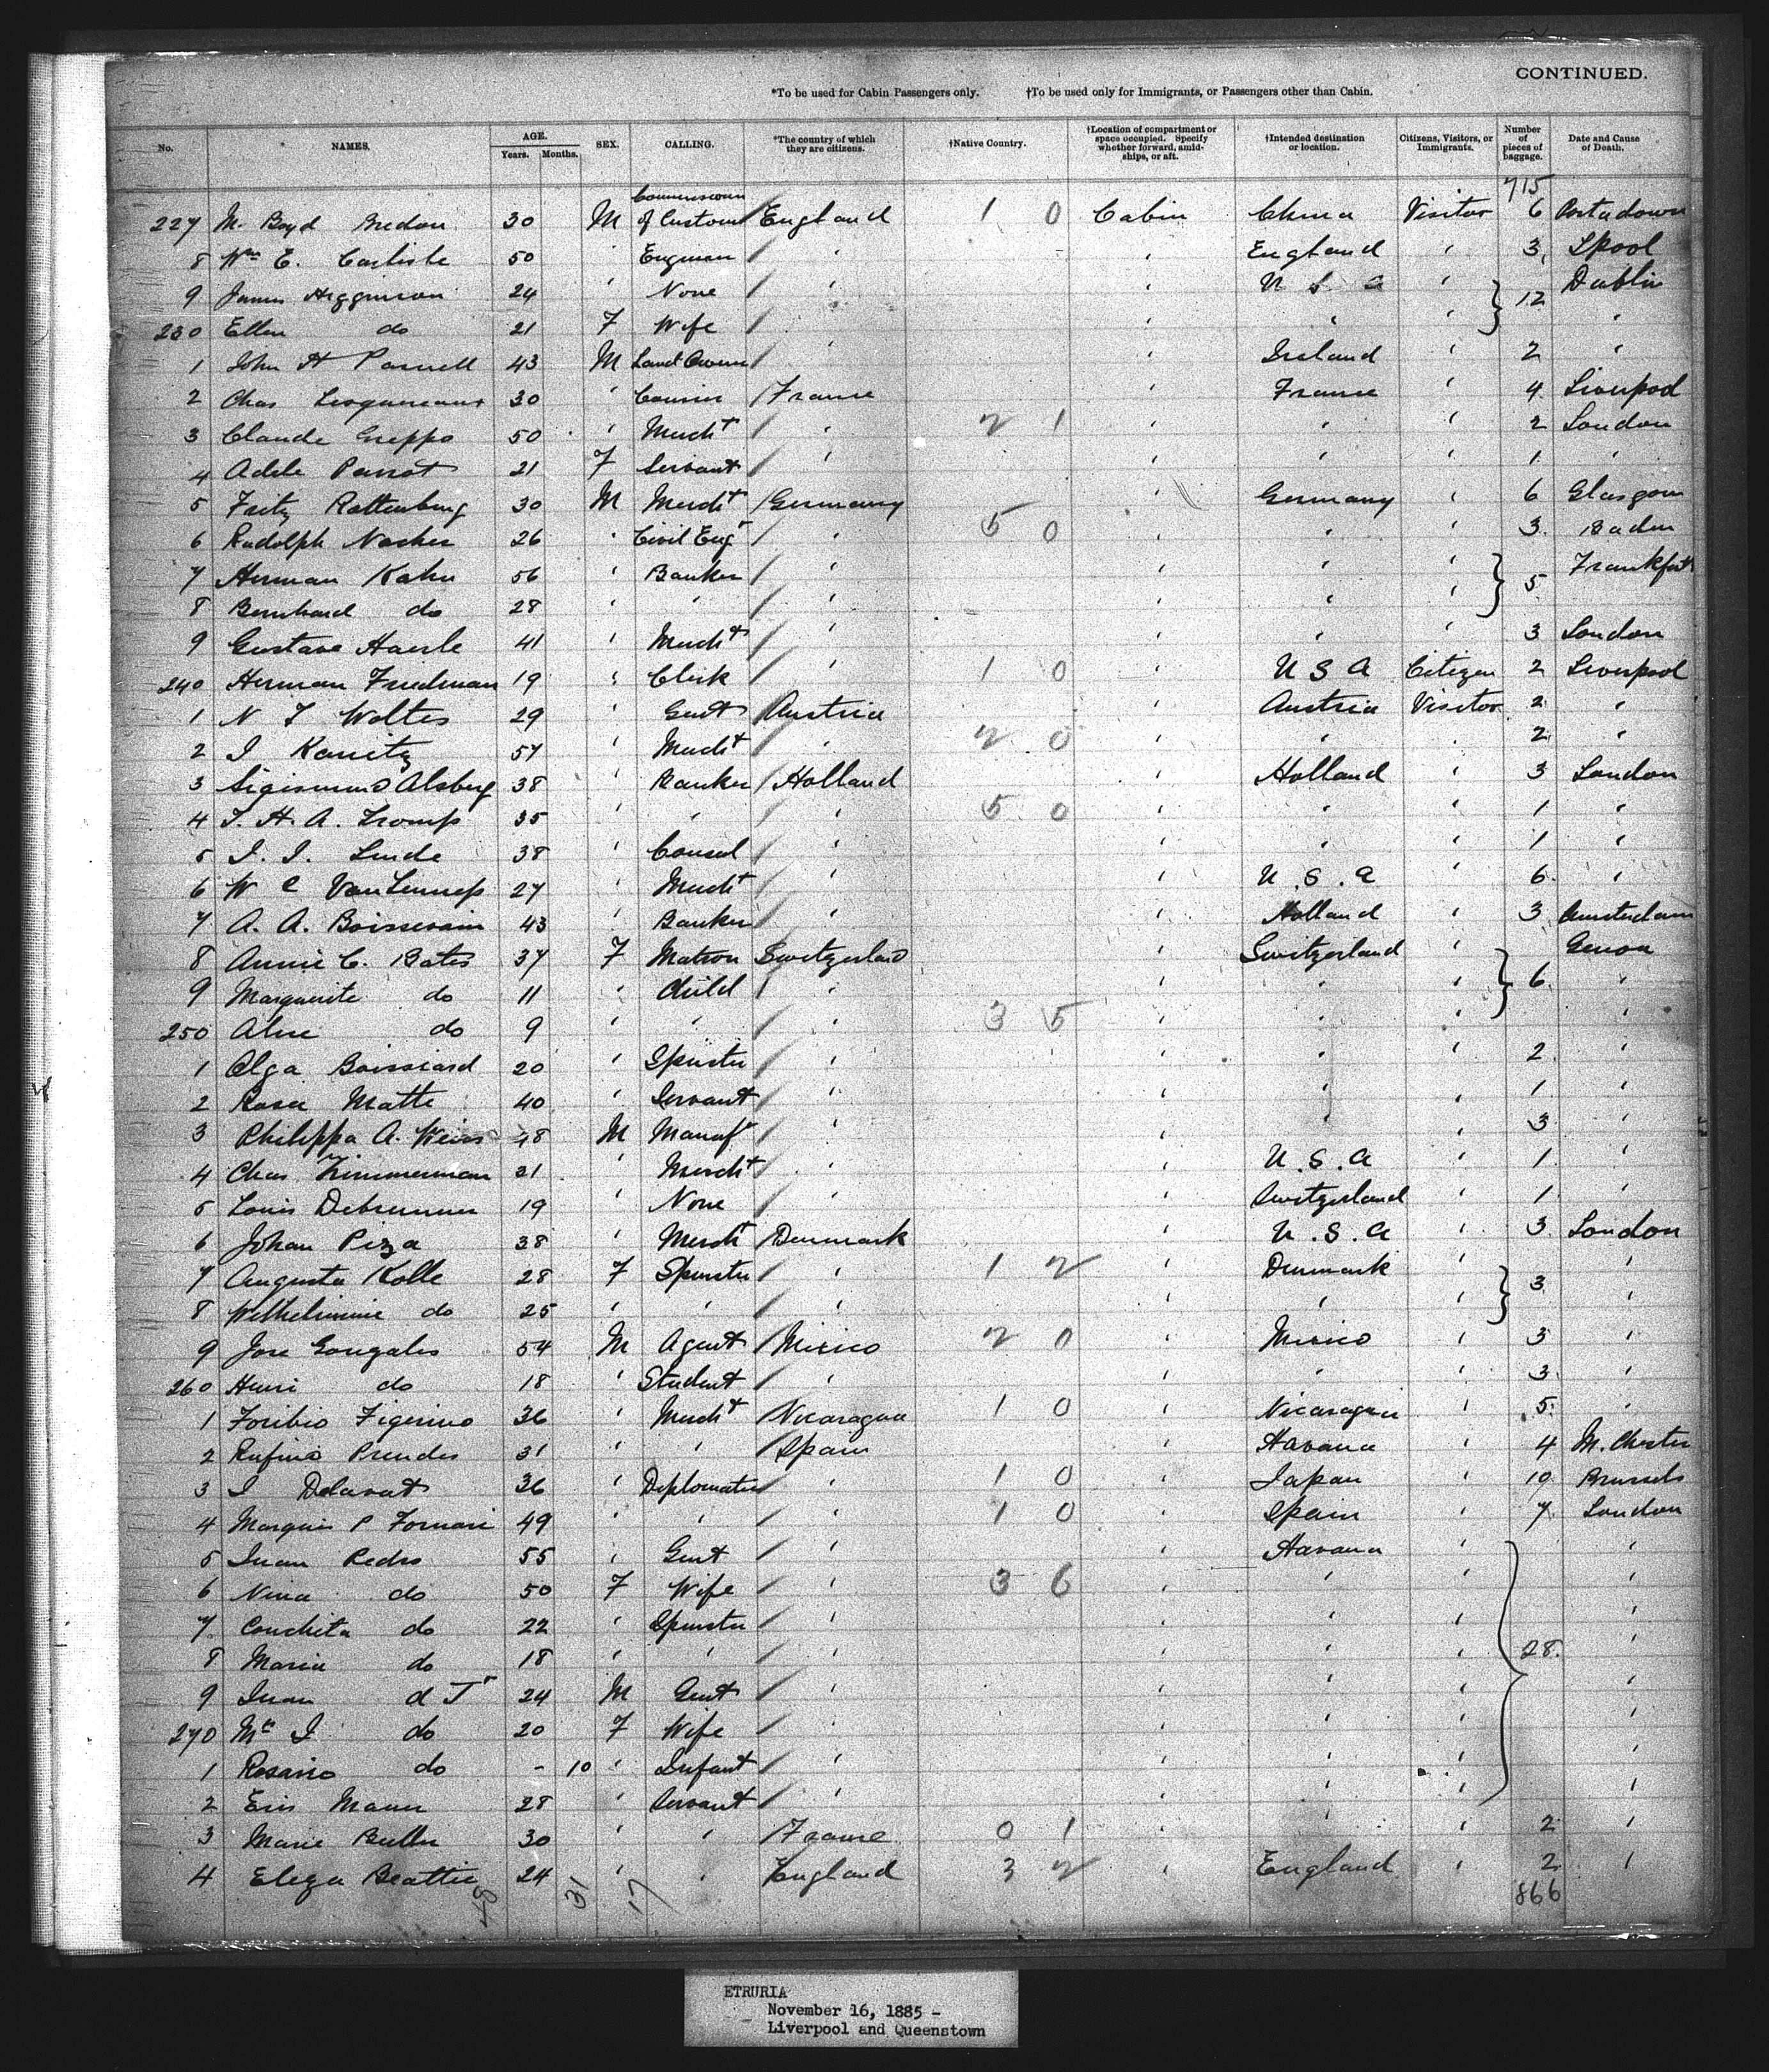 CONTINUED.
*To be used for Cabin Passengers only. †To be used only for Immigrants, or Passengers other than Cabin.
No. NAMES. AGE. Years. Months. SEX. CALLING. *The country of which they are citizens. †Native Country. †Location of compartment or space occupied. Specify whether forward, amidships, or aft. †Intended destination or location. Citizens, Visitors, or Immigrants. Number of pieces of baggage. Date and Cause of Death.
715
227 M. Boyd Bredon 30 M of Customs England 1 0 Cabin China Visitor 6 Portadown
8 Wm E. Carlisle 50 ' ' ' England ' 3 Lpool
9 James Higginson 24 ' None ' ' U S A ' 12 Dublin
230 Ellen do 21 F Wife ' ' ' ' '
1 John H Parnell 43 M Land Owner ' ' Ireland ' 2 '
2 Chas 30 ' France ' France ' 4 Liverpool
3 Claude Greppo 50 ' Mercht ' 2 1 ' ' ' 2 London
4 Adele Parrot 21 F Servant ' ' ' ' 1 '
5 Fritz Rottenburg 30 M Mercht Germany ' Germany ' 6 Glasgow
6 Rudolph 26 ' Civil Eng ' 5 0 ' ' ' 3 Baden
7 Herman Kahn 56 ' Banker ' ' ' ' 5 Frankfort
8 Bernhard do 28 ' ' ' ' ' '
9 Gustave Haerle 41 ' Mercht ' ' ' 3 London
240 Herman Friedman 19 ' Clerk ' 1 0 ' U S A Citizen 2 Liverpool
1 N Wolter 29 ' Gent Austria ' Austria Visitor 2 '
2 I Kanitz 57 ' Mercht ' 2 0 ' ' ' 2 '
3 Sigismund Alsberg 38 ' Banker Holland ' Holland ' 3 London
4 T. H. A. Tromp 35 ' ' ' 5 0 ' ' ' 1 '
5 38 ' Consul ' ' ' ' 1 '
6 W C Van Lennep 27 ' Mercht ' ' U.S.A ' 6 '
7 A. A. Boissevain 43 ' Banker ' ' Holland ' 3 Amsterdam
8 Annie C. Bates 37 F Matron Switzerland ' Switzerland ' 6 Genoa
9 Marguerite do 11 ' Child ' ' ' ' '
250 Aline do 9 ' ' ' 3 5 ' ' ' '
1 Olga Boissiard 20 ' Spinster ' ' ' ' 2 '
2 Rosa Matte 40 ' Servant ' ' ' ' 1 '
3 Philippa A. Weiss 48 M Manuf ' ' ' ' 3 '
4 Chas Zimmerman 31 ' Mercht ' ' U.S.A ' 1 '
5 Louis Debrunner 19 ' None ' ' Switzerland ' 1 '
6 Johan Piza 38 ' Mercht Denmark ' U.S.A ' 3 London
7 Augusta Kolle 28 F Spinster ' 1 2 ' Denmark ' 3 '
8 Wilhelminie do 25 ' ' ' ' ' ' '
9 Jose Gonzales 54 M Agent Mexico 2 0 ' Mexico ' 3 '
260 Henri do 18 ' Student ' ' ' ' 3 '
1 Toribio Tigerino 36 ' Mercht Nicaragua 1 0 ' Nicaragua ' 5 '
2 Rufino Prendes 31 ' ' Spain ' Havana ' 4 M.Chester
3 I Delavat 36 ' Diplomatic ' 1 0 ' Japan ' 10 Brussels
4 Marquis P Fornari 49 ' ' ' 1 0 ' Spain ' 7 London
5 Juan Pedro 55 ' Gent ' ' Havana ' 28 '
6 Nina do 50 F Wife ' 3 6 ' ' ' '
7 Conchita do 22 ' Spinster ' ' ' ' '
8 Maria do 18 ' ' ' ' ' ' '
9 Juan d Jr 24 M Gent ' ' ' ' '
270 Mrs I do 20 F Wife ' ' ' ' '
1 Rosario do - 10 ' Infant ' ' ' ' '
2 28 ' Servant ' ' ' ' '
3 Marie 30 ' ' France 0 1 ' ' ' 2 '
4 Eliza Beattie 24 ' ' England 3 2 ' England ' 2 '
48 31 17 866
ETRURIA
November 16, 1885 -
Liverpool and Queenstown